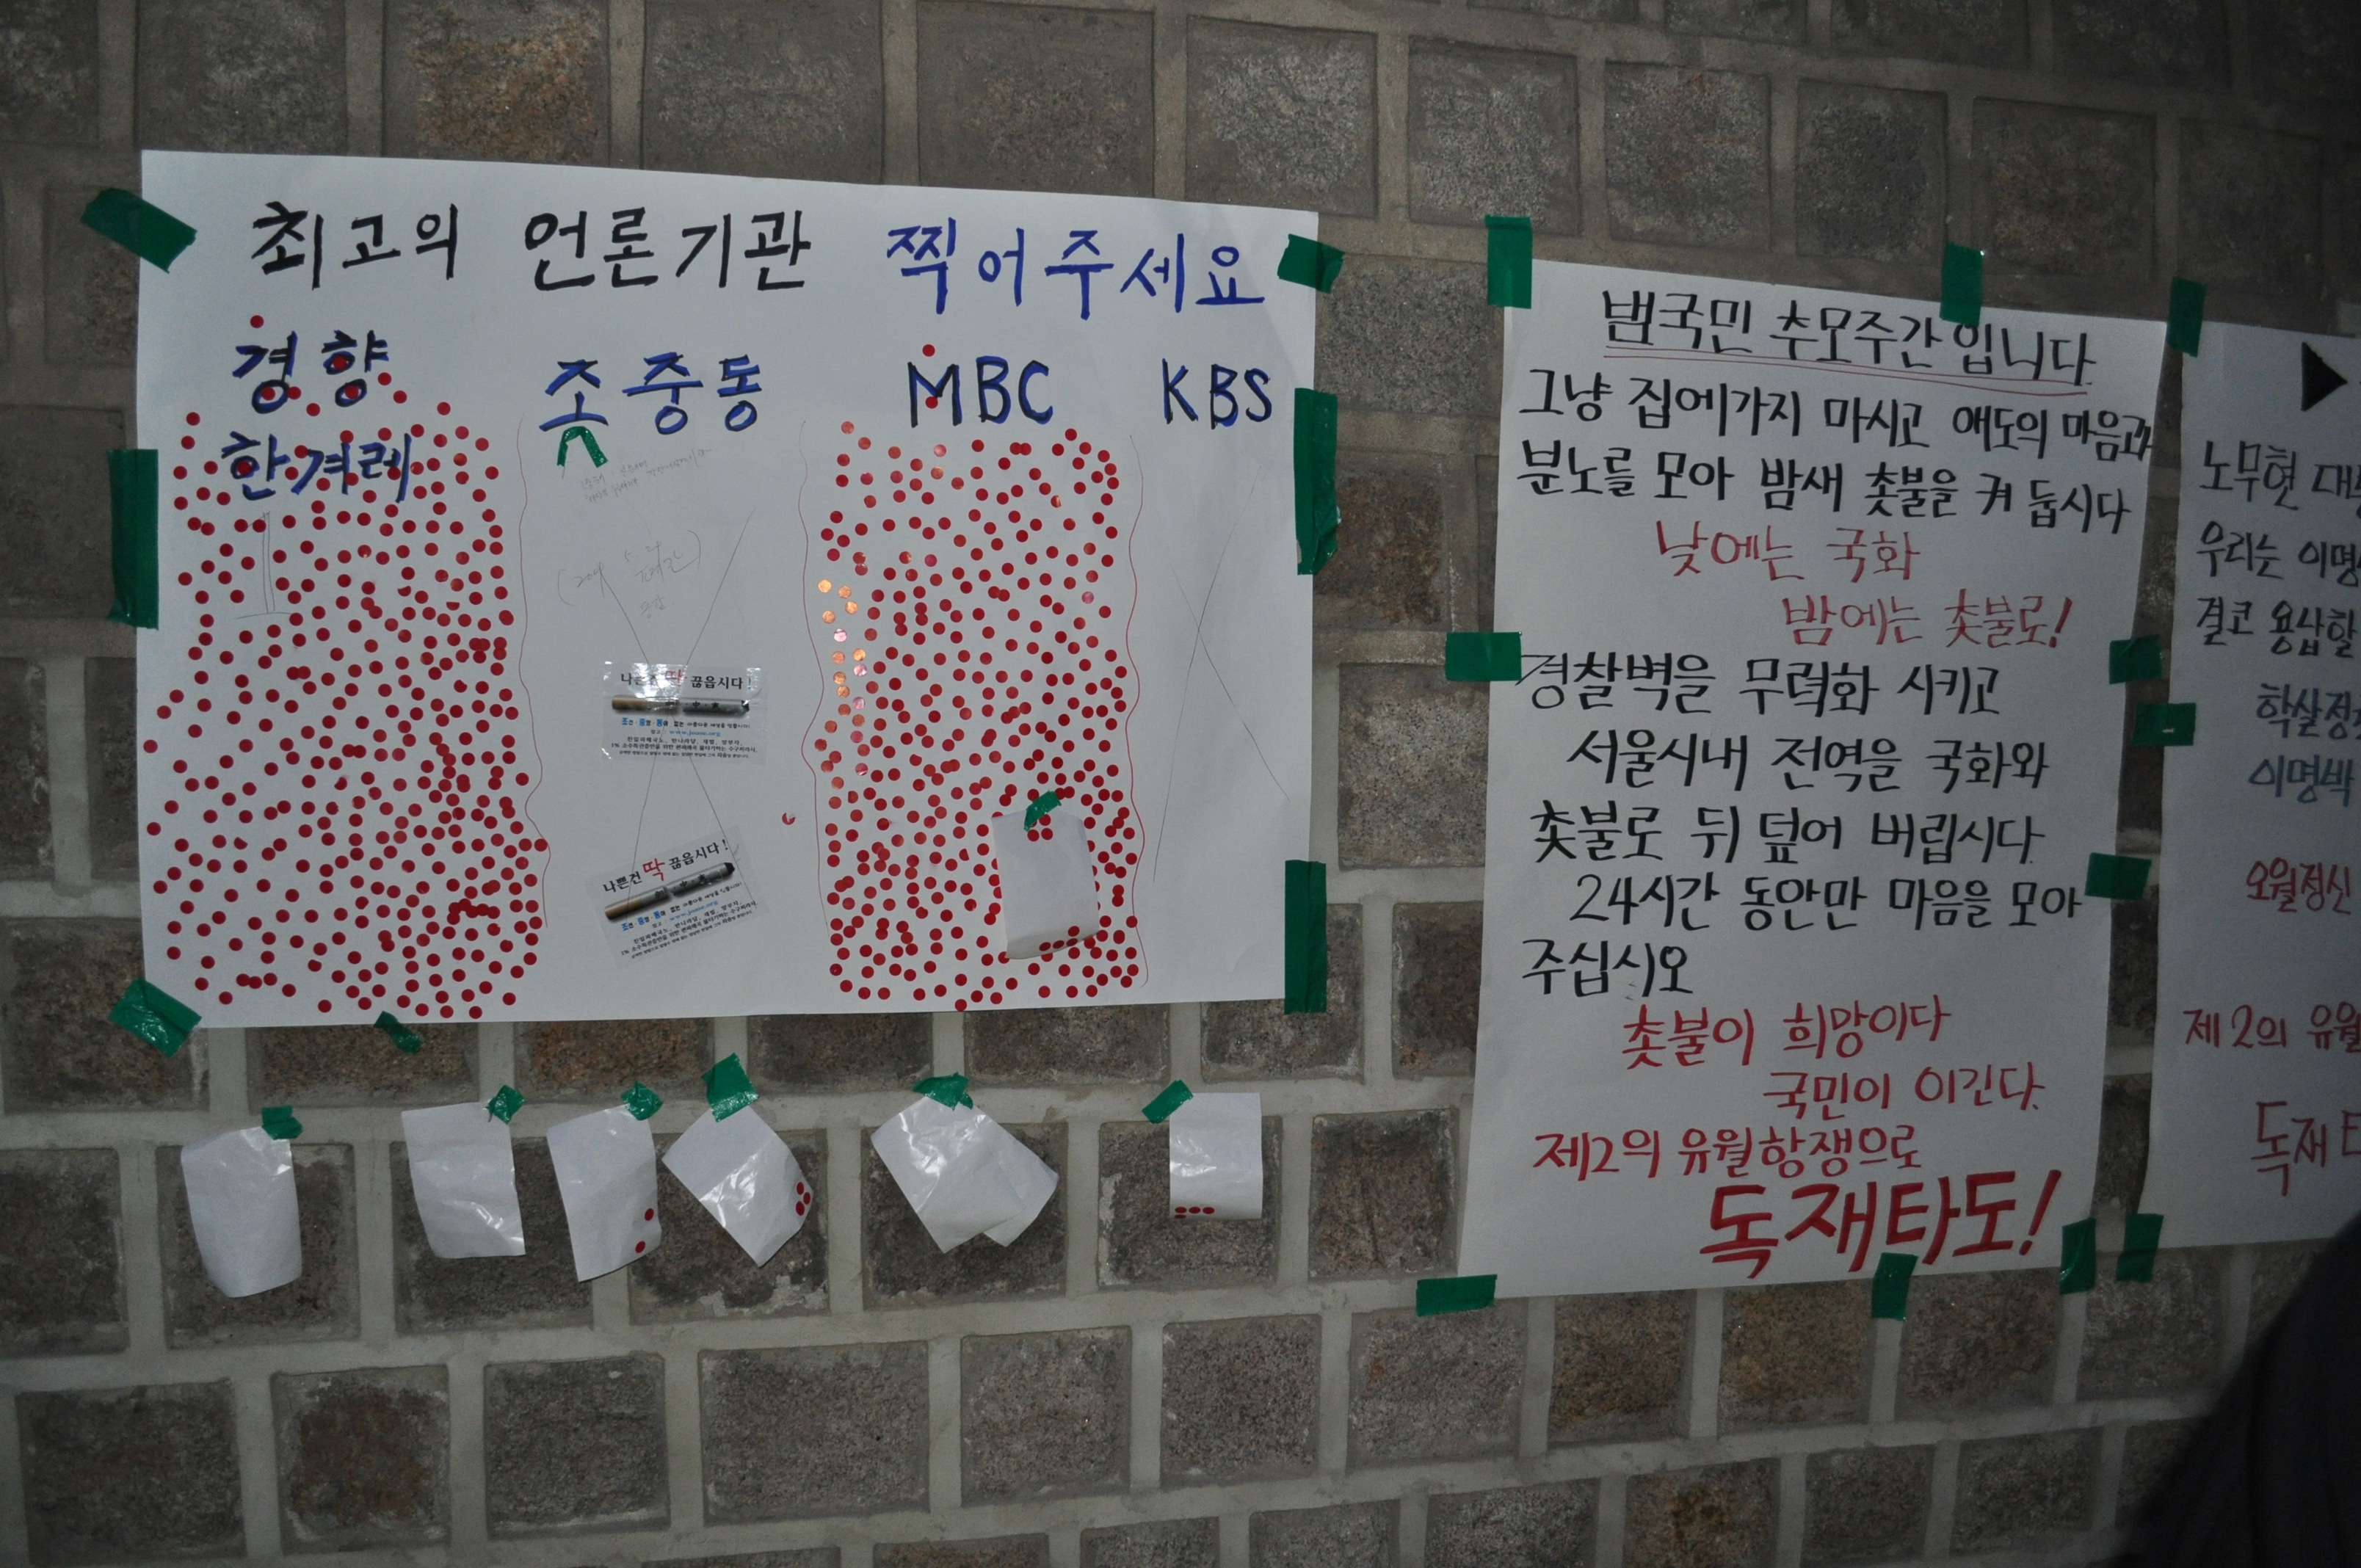 최고의 언론기관 찍어주세요
경향 조중동 MBC KBS
한겨레
나쁜건 딱 끊읍시다!
www.joase.org
나쁜건 딱 끊읍시다!
범국민 추모주간입니다
그냥 집에가지 마시고 애도의 마음과
분노를 모아 밤새 촛불을 켜 둡시다
낮에는 국화
밤에는 촛불로!
경찰벽을 무력화 시키고
서울시내 전역을 국화와
촛불로 뒤 덮어 버립시다
24시간 동안만 마음을 모아
주십시오
촛불이 희망이다
국민이 이긴다
제2의 유월항쟁으로
독재타도!
노무현
우리는
결코 용납할
이명박
오월정신
제2의
독재